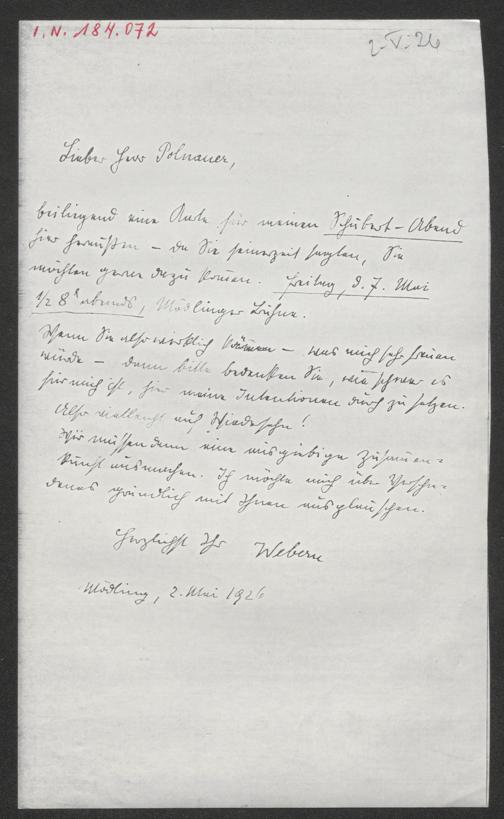 I.N. 184.072
2.V.26
Lieber Herr Polnauer,
beiliegend eine Karte für meinen Schubert-Abend
hier heraußen – da Sie seinerzeit sagten, Sie
möchten gerne dazu kommen. Freitag, d. 7. Mai
1/2 8h abends, Mödlinger Bühne.
Wenn Sie also wirklich kommen – was mich sehr freuen
würde – dann bitte bedenken Sie, wie schwer es
für mich ist, hier meine Intentionen durch zu setzen.
Also vielleicht auf Wiedersehn!
Wir müssen dann eine ausgiebige Zusammen-
kunft ausmachen. Ich möchte mich über Verschie-
denes gründlich mit Ihnen ausplauschen.
Herzlichst Ihr Webern
Mödling, 2. Mai 1926